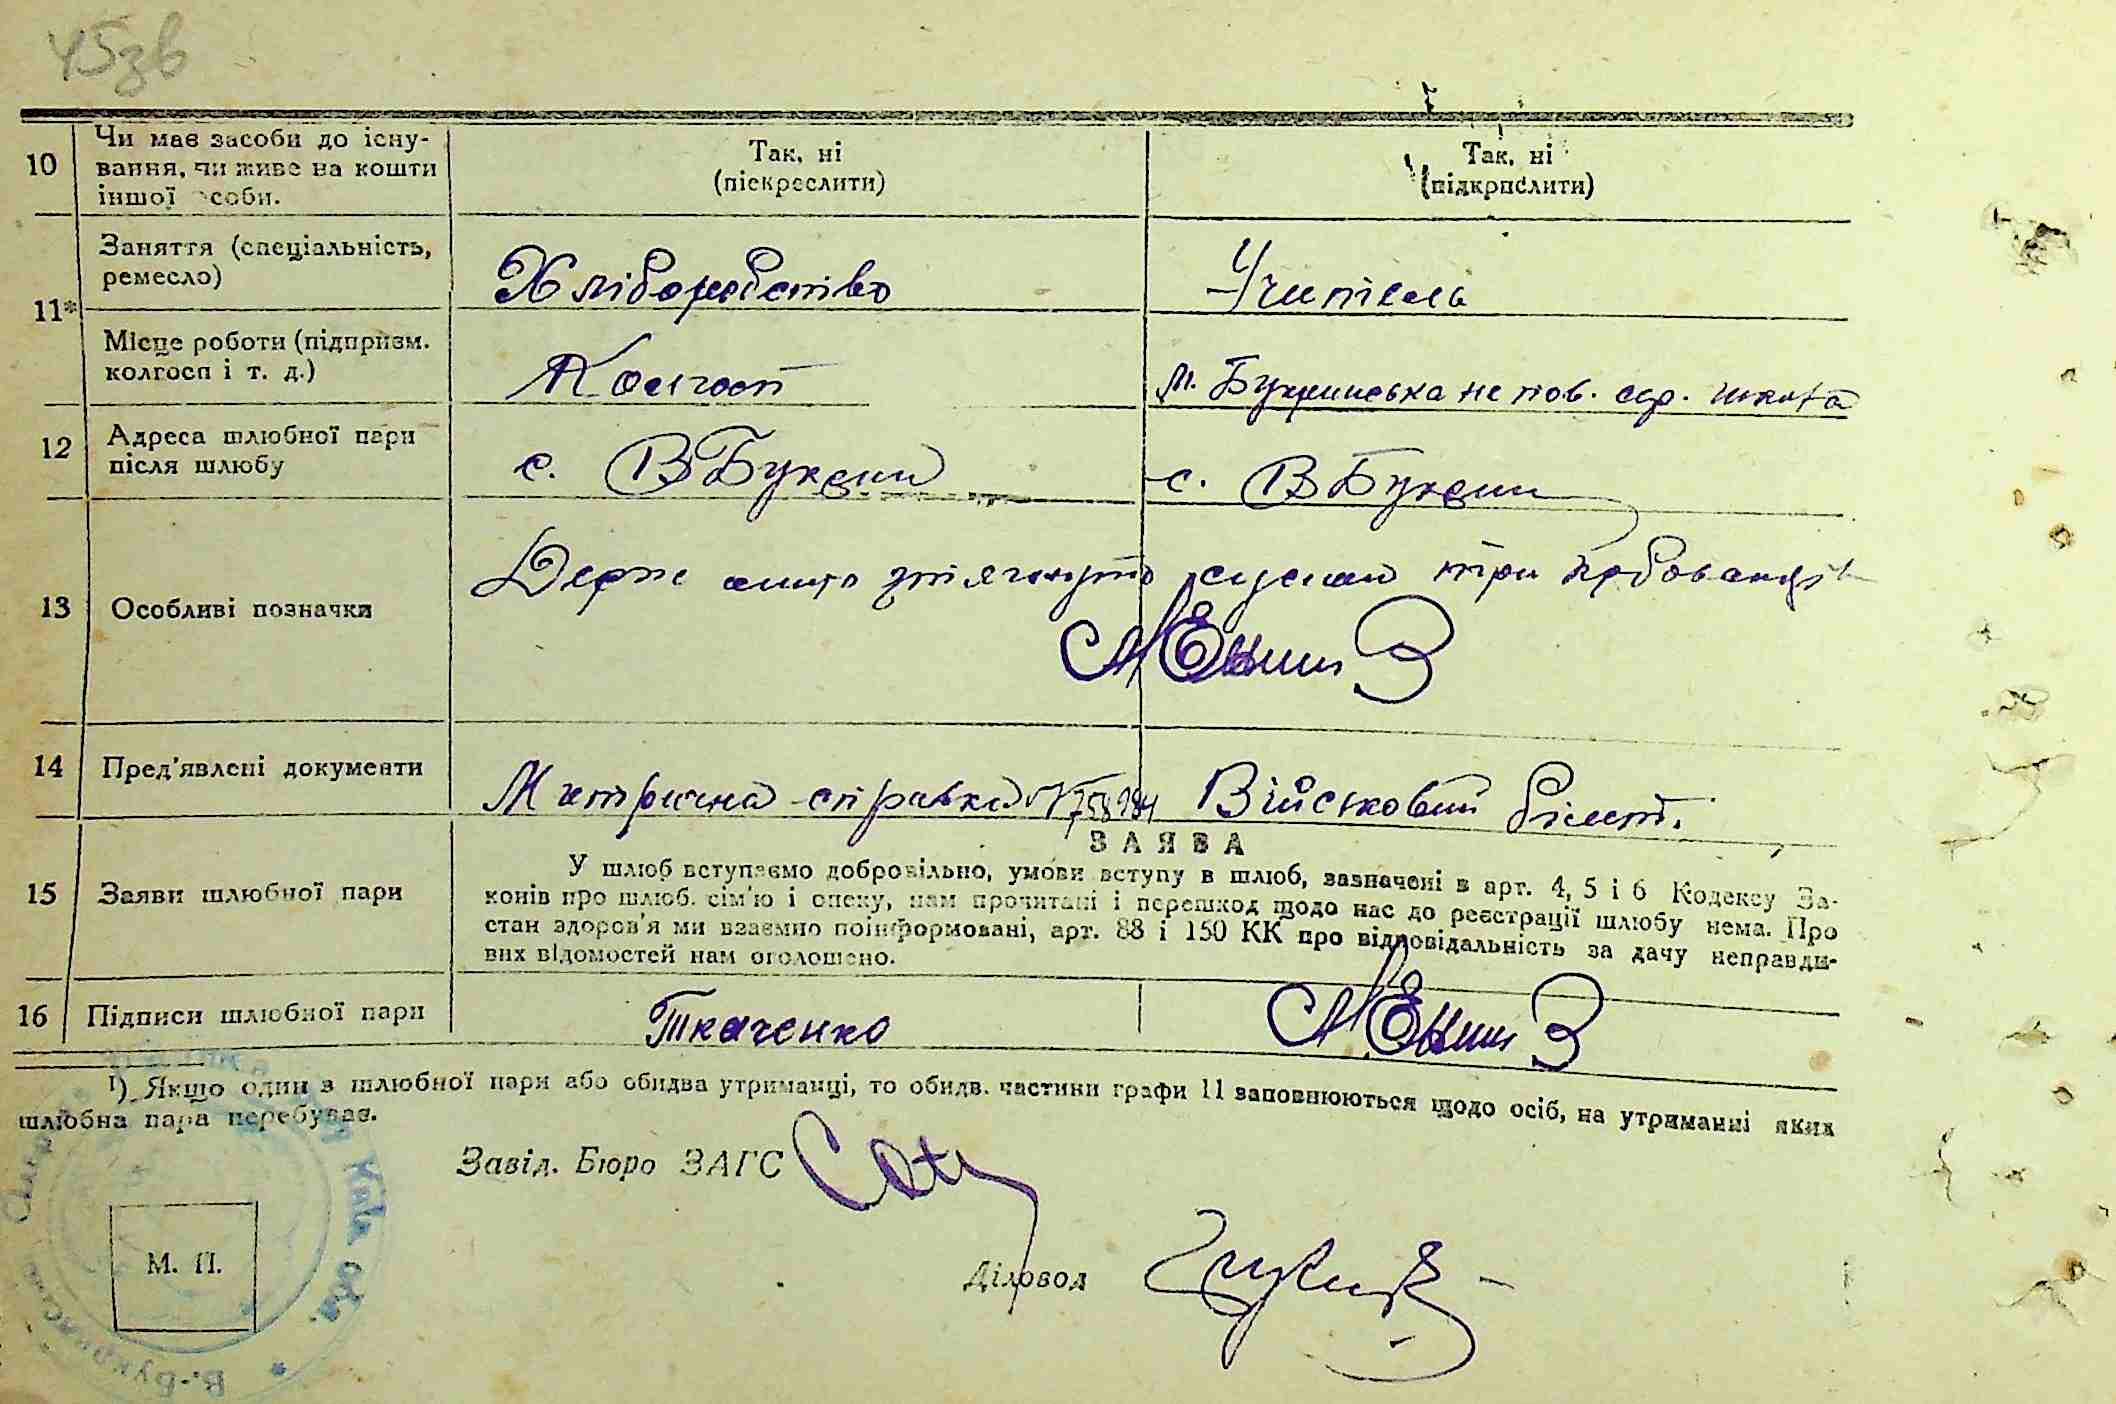 45зв
10
Чи має засоби до існу-
вання, чи живе на кошти
іншої особи.
Так, ні
(піскреслити)
Так, ні
(підкрпслити)
11*
Заняття (спеціальність,
ремесло)
Хліборобство
Учитель
Місце роботи (підпризм.
колгосп і т. д.)
Колгосп
М. Букринська непов. сер. школа
12
Адреса шлюбної пари
після шлюбу
с. В Букрин
с. В Букрин
13
Особливі позначки
Держ мито стягнуто
три карбованці
14
Пред'явлені документи
Митрична справка
Військовий білет.
ЗАЯВА
15
Заяви шлюбної пари
У шлюб вступаємо добровільно, умови вступу в шлюб, зазначені в арт. 4, 5 і 6 Кодексу За-
конів про шлюб. сім'ю і опеку, нам прочитані і перешкод щодо нас до реєстрації шлюбу нема. Про
стан здоров'я ми взаємно поінформовані, арт. 88 і 150 КК про відповідальність за дачу неправди-
вих відомостей нам оголошено.
16
Підписи шлюбної пари
Ткаченко
¹) Якщо один з шлюбної пари або обидва утриманці, то обидв. частини графи 11 заповнюються щодо осіб, на утриманні яких
шлюбна пара перебуває.
Завід. Бюро ЗАГС
Діловод
М. П.